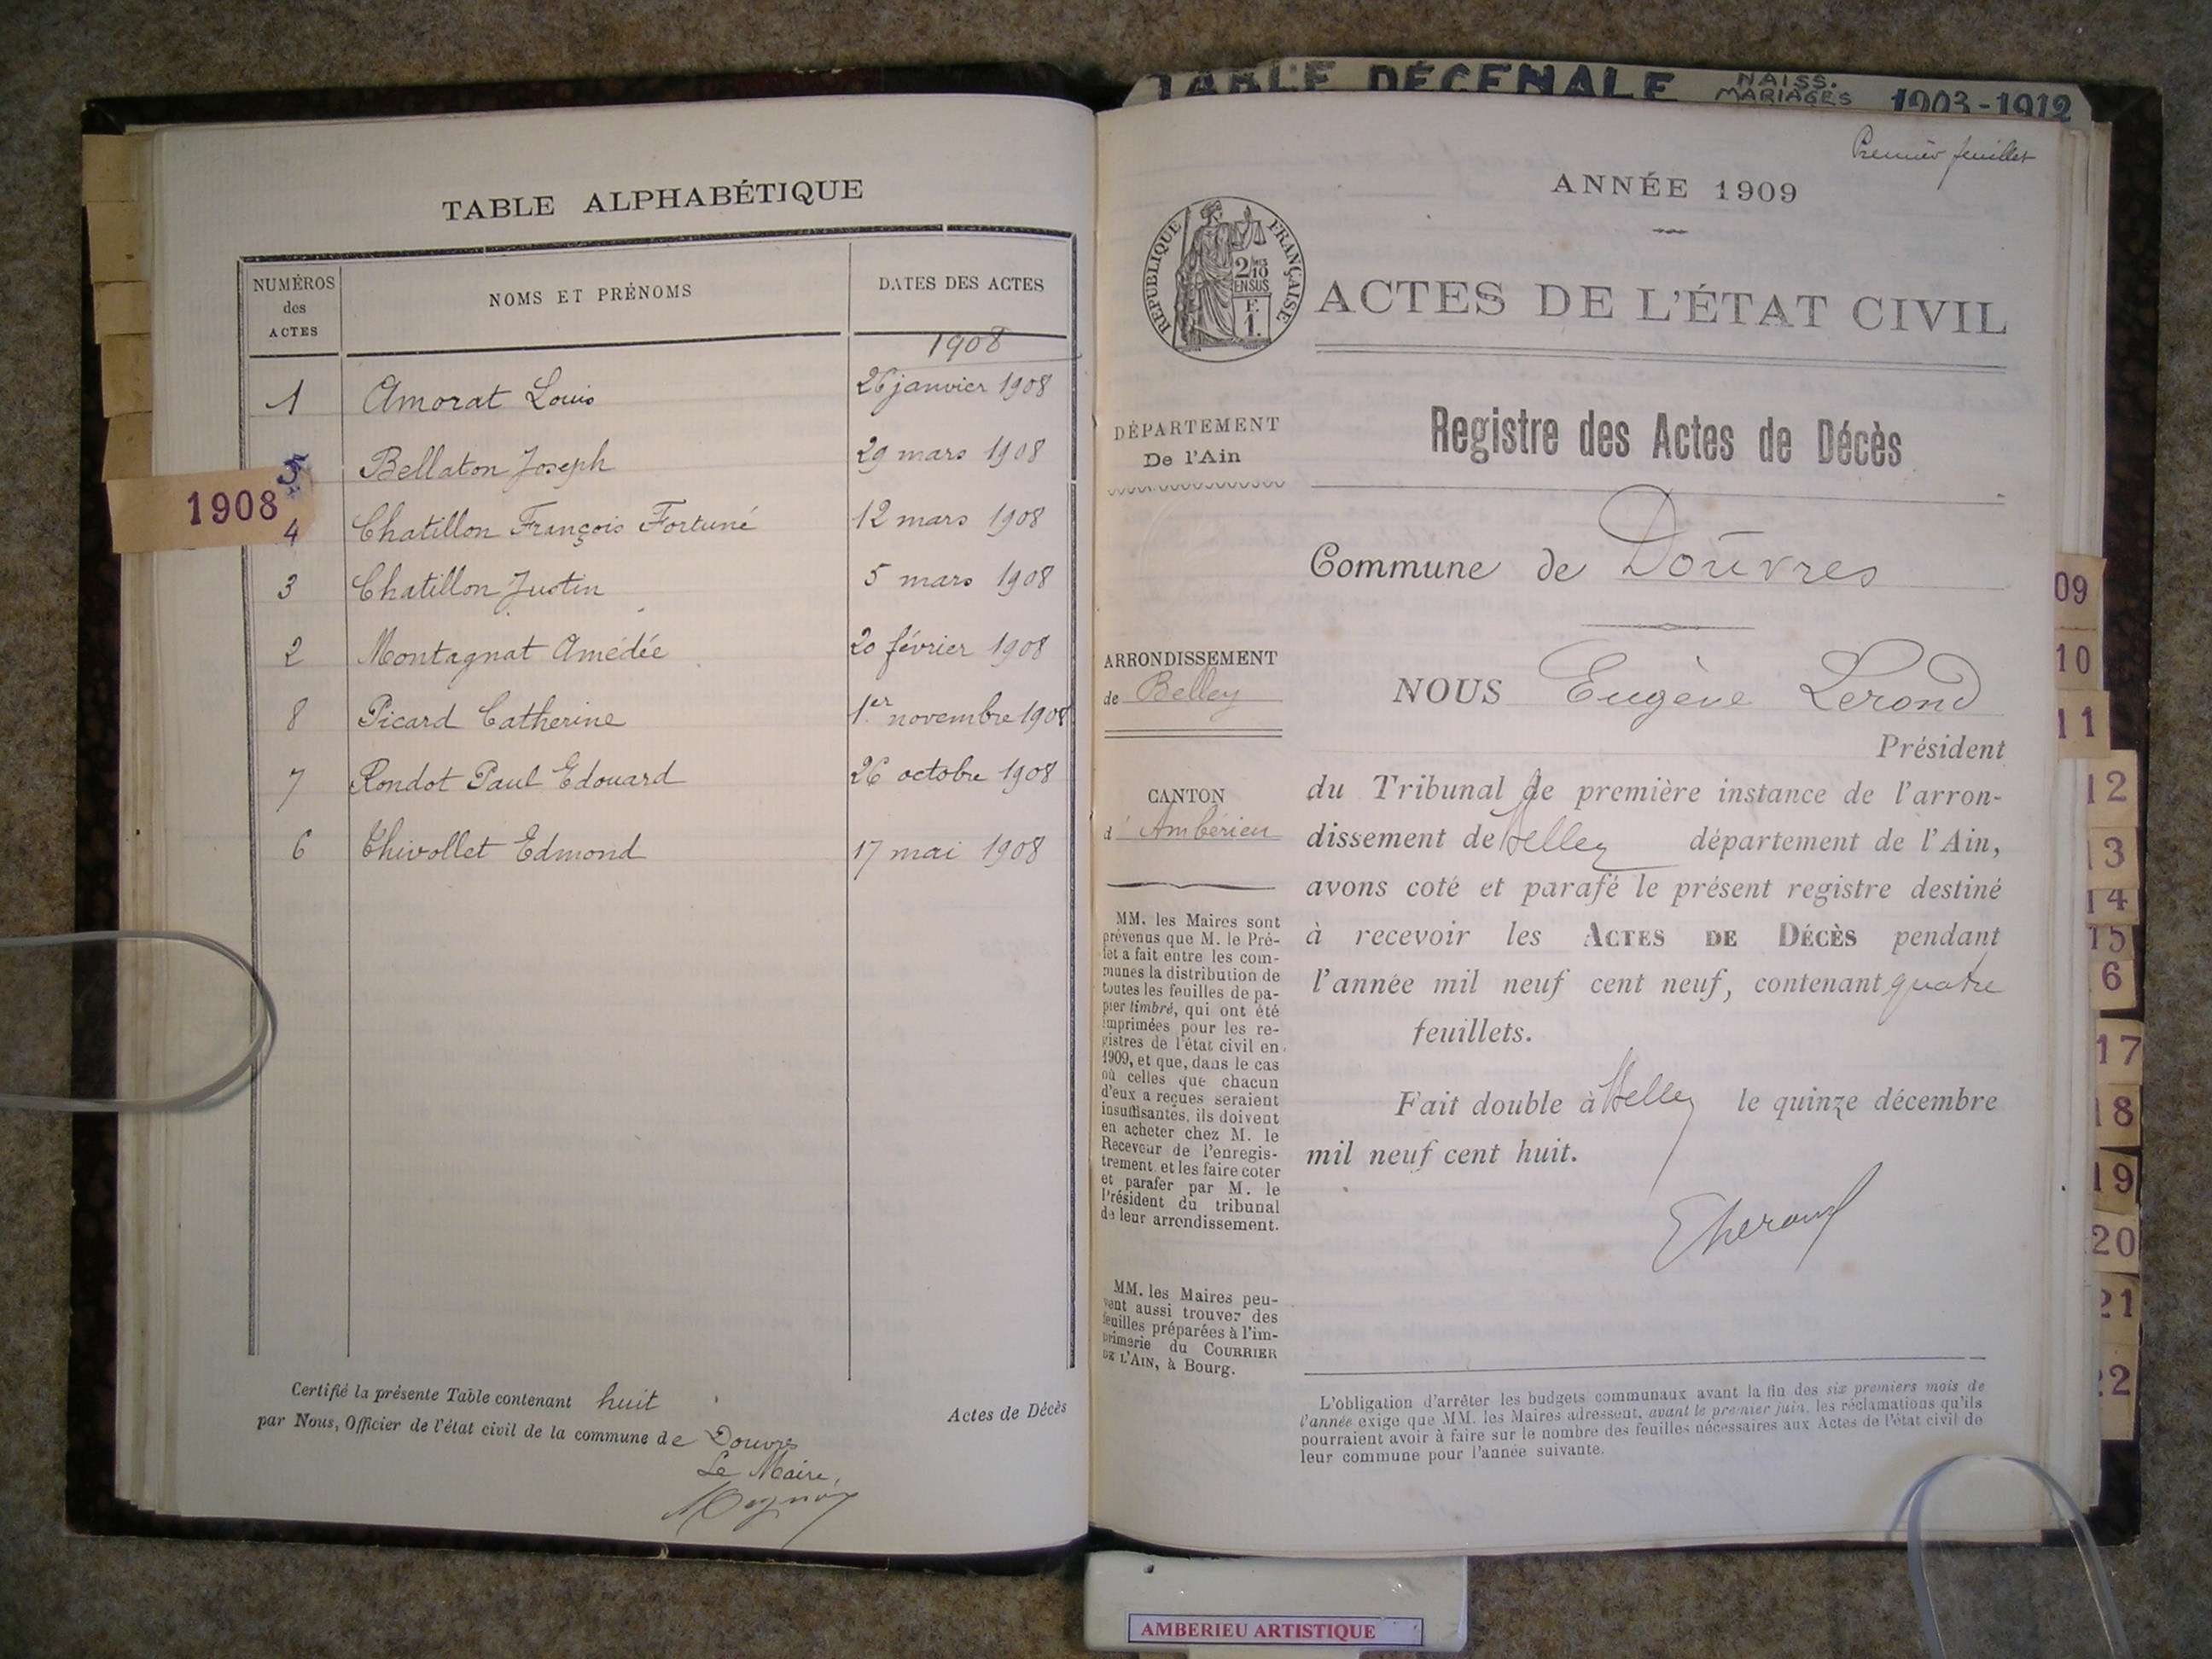 TABLE DÉCENALE NAISS. MARIAGES 1903-1912
TABLE ALPHABÉTIQUE
NUMÉROS des ACTES
NOMS ET PRÉNOMS
DATES DES ACTES
1908
1 Amorat Louis 26 janvier 1908
5 Bellaton Joseph 29 mars 1908
1908
4 Chatillon François Fortuné 12 mars 1908
3 Chatillon Justin 5 mars 1908
2 Montagnat Amédée 20 février 1908
8 Picard Catherine 1er novembre 1908
7 Rondot Paul Edouard 26 octobre 1908
6 Thivollet Edmond 17 mai 1908
Certifié la présente Table contenant huit
par Nous, Officier de l'état civil de la commune de Douvres
Le Maire,
Actes de Décès
Premier feuillet
ANNÉE 1909
RÉPUBLIQUE FRANÇAISE
2/10 EN SUS
F. 1.
ACTES DE L'ÉTAT CIVIL
DÉPARTEMENT
De l'Ain
Registre des Actes de Décès
Commune de Douvres
ARRONDISSEMENT
de Belley
NOUS Eugène Lerond
Président
CANTON
d' Ambérieu
du Tribunal de première instance de l'arron-
dissement de Belley département de l'Ain,
avons coté et parafé le présent registre destiné
à recevoir les ACTES DE DÉCÈS pendant
l'année mil neuf cent neuf, contenant quatre
feuillets.
Fait double à Belley le quinze décembre
mil neuf cent huit.
MM. les Maires sont
prévenus que M. le Pré-
fet a fait entre les com-
munes la distribution de
toutes les feuilles de pa-
pier timbré, qui ont été
imprimées pour les re-
gistres de l'état civil en
1909, et que, dans le cas
où celles que chacun
d'eux a reçues seraient
insuffisantes, ils doivent
en acheter chez M. le
Receveur de l'enregis-
trement et les faire coter
et parafer par M. le
Président du tribunal
de leur arrondissement.
MM. les Maires peu-
vent aussi trouver des
feuilles préparées à l'im-
primerie du COURRIER
DE L'AIN, à Bourg.
L'obligation d'arrêter les budgets communaux avant la fin des six premiers mois de
l'année exige que MM. les Maires adressent, avant le premier juin, les réclamations qu'ils
pourraient avoir à faire sur le nombre des feuilles nécessaires aux Actes de l'état civil de
leur commune pour l'année suivante.
09
10
11
12
13
14
15
6
17
18
19
20
21
22
AMBERIEU ARTISTIQUE